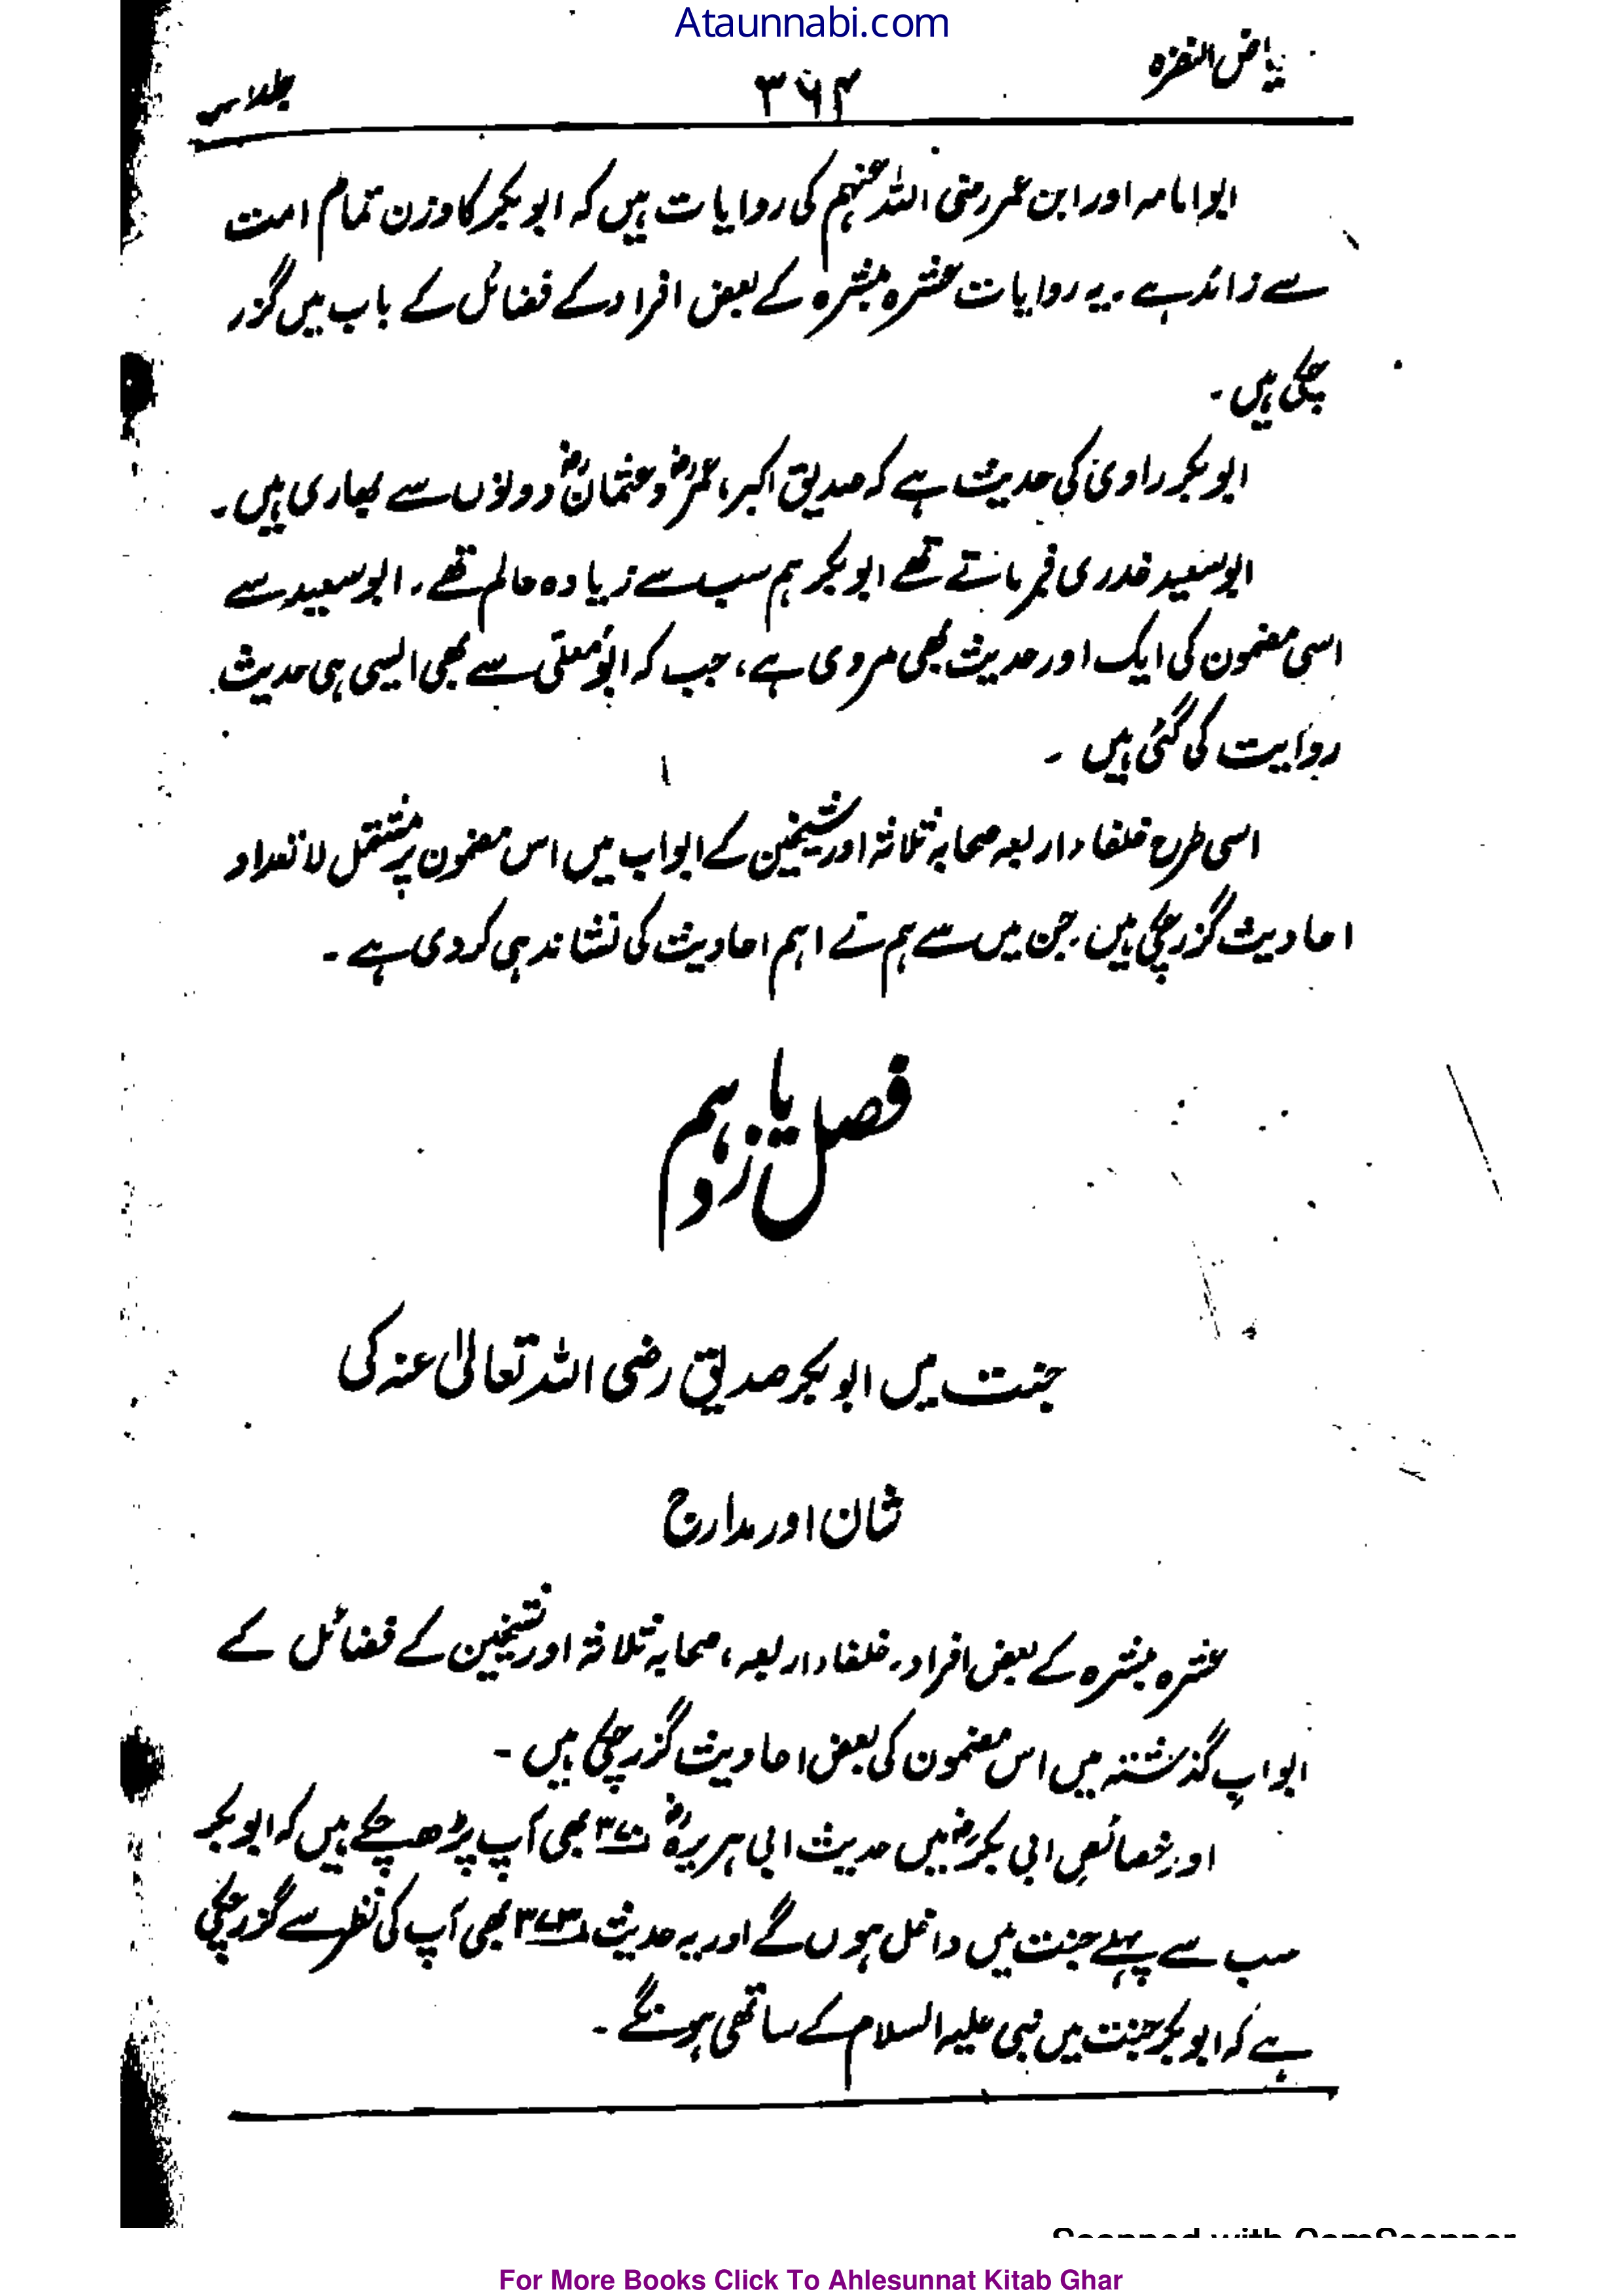 Ataunnabi.com
ریاض النضرہ ۳۶۴ جلد ۳
ابوامامہ اور ابن عمر رضی اللہ عنہم کی روایات ہیں کہ ابوبکر کا وزن تمام امت
سے زائد ہے۔ یہ روایات عشرہ مبشرہ کے بعض افراد کے فضائل کے باب میں گزر
چکی ہیں۔
ابوبکر راوی کی حدیث ہے کہ صدیق اکبر، عمرؓ و عثمانؓ دونوں سے بھاری ہیں۔
ابوسعید خدری فرماتے تھے ابوبکر ہم سب سے زیادہ عالم تھے۔ ابوسعید سے
اسی مضمون کی ایک اور حدیث بھی مروی ہے، جب کہ ابومعلی سے بھی ایسی ہی حدیث
روایت کی گئی ہیں۔
اسی طرح خلفاء اربعہ صحابہ ثلاثہ اور شیخین کے ابواب میں اس مضمون پر مشتمل لاتعداد
احادیث گزر چکی ہیں۔ جن میں سے ہم نے اہم احادیث کی نشاندہی کر دی ہے۔
فصل یازدہم
جنت میں ابوبکر صدیق رضی اللہ تعالیٰ عنہ کی
شان اور مدارج
عشرہ مبشرہ کے بعض افراد، خلفاء اربعہ، صحابہ ثلاثہ اور شیخین کے فضائل کے
ابواب گذشتہ میں اس مضمون کی بعض احادیث گزر چکی ہیں۔
اور خصائص ابی بکرؓ میں حدیث ابی ہریرہؓ بھی آپ پڑھ چکے ہیں کہ ابوبکر
سب سے پہلے جنت میں داخل ہوں گے اور یہ حدیث بھی آپ کی نظر سے گزر چکی
ہے کہ ابوبکر جنت میں نبی علیہ السلام کے ساتھی ہونگے۔
Scanned with CamScanner
For More Books Click To Ahlesunnat Kitab Ghar